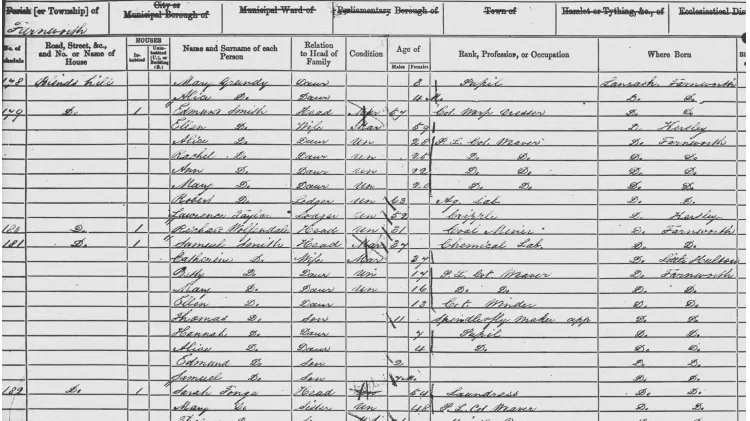 Parish [or Township] of City or Municipal Borough of Municipal Ward of Parliamentary Borough of Town of Hamlet or Tything, &c., of Ecclesiastical Dis
Farnworth
No. of Schedule Road, Street, &c., and No. or Name of House HOUSES Inhabited Uninhabited (U.), or Building (B.) Name and Surname of each Person Relation to Head of Family Condition Age of Males Females Rank, Profession, or Occupation Where Born
148 Mary Grundy Daur 8 Pupil Lancash. Farnworth
Alice Do. Daur Do. Do.
149 Do. 1 Edmund Smith Head Mar 57 Cot. Warp Dresser Do. Do.
Ellen Do. Wife Mar 59 Do. Kersley
Alice Do. Daur Un 28 P. L. Cot. Weaver Do. Farnworth
Rachel Do. Daur Un 25 Do. Do. Do. Do.
Ann Do. Daur Un 22 Do. Do. Do. Do.
Mary Do. Daur Un 20 Do. Do. Do. Do.
Robert Do. Lodger Un 63 Ag. Lab Do. Do.
Lawrence Lodger Un 52 Cripple Do. Kersley
Do. 1 Head Un 31 Coal Miner Do. Farnworth
Do. 1 Samuel Smith Head Mar 37 Chemical Lab. Do. Do.
Catherine Do. Wife Mar 37 Do. Little Hulton
Betty Do. Daur Un 17 P. L. Cot Weaver Do. Farnworth
Mary Do. Daur Un 16 Do. Do. Do. Do.
Ellen Do. Daur 13 Cot. Winder Do. Do.
Thomas Do. Son 11 Spindle & fly Maker app Do. Do.
Hannah Do. Daur 7 Pupil Do. Do.
Alice Do. Daur 4 Do. Do. Do.
Edmund Do. Son 2 Do. Do.
Samuel Do. Son Do. Do.
Do. 1 Sarah Tonge Head 54 Laundress Do. Do.
Mary Do. Sister Un 48 P. L. Cot Weaver Do. Do.